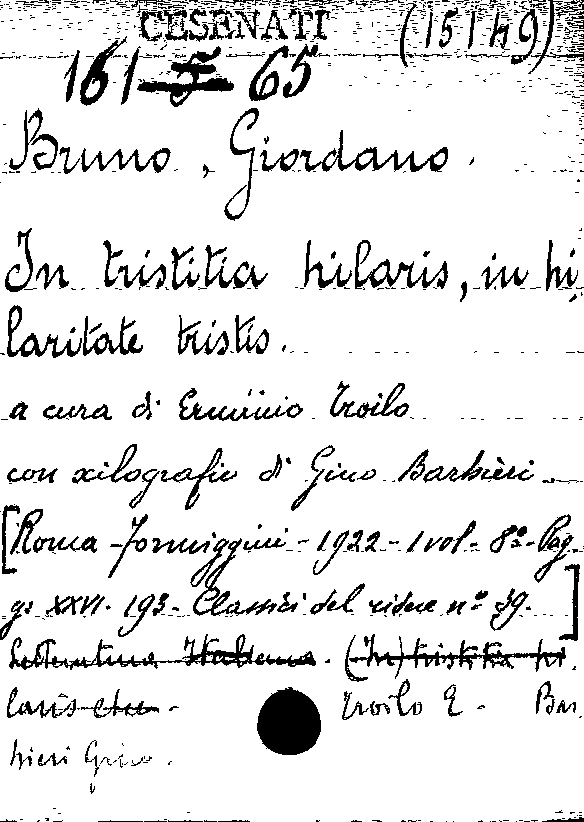 CESENATI (15149)
161 5 65
Bruno, Giordano.
In tristitia hilaris, in hi
laritate tristis.
a cura di Erminio Troilo
con xilografie di Gino Barbieri
[Roma - Formiggini - 1922 - 1 vol. 8º. Pag.
g: XXVI. 193. Classici del ridere nº 39.]
Letteratura Italiana. (In) tristitia hi
laris etc. Troilo E. Bar
bieri Gino.